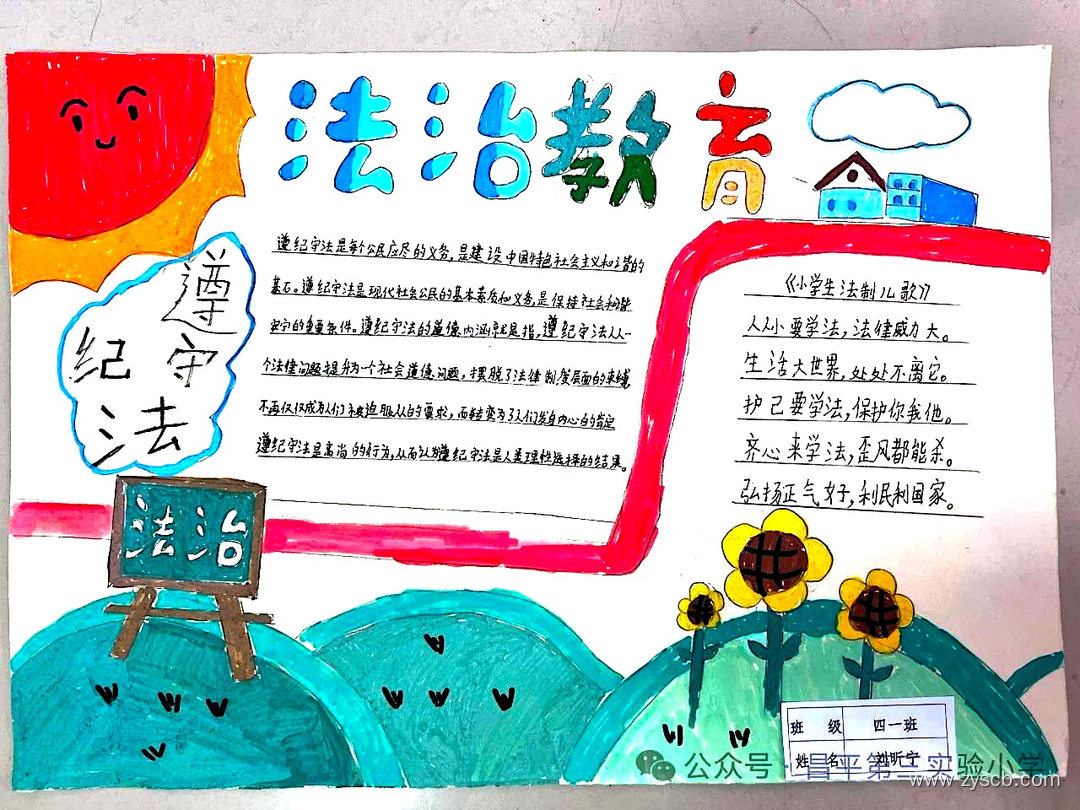 法治教育
遵
纪 守
法
遵纪守法是每个公民应尽的义务,是建设中国特色社会主义和谐的
基石。遵纪守法是现代社会公民的基本素质和义务,是保持社会和谐
安宁的重要条件。遵纪守法的道德内涵就是指,遵纪守法从一
个法律问题提升为一个社会道德问题,摆脱了法律制度层面的束缚
不再仅仅成为人们被迫服从的要求,而转变为了人们发自内心的肯定
遵纪守法是高尚的行为,从而认为遵纪守法是人类理性选择的结果。
《小学生法制儿歌》
人小要学法,法律威力大。
生活大世界,处处不离它。
护己要学法,保护你我他。
齐心来学法,歪风都能杀。
弘扬正气好,利民利国家。
法治
班 级 四一班
姓 名 刘昕宁
公众号·昌平第二实验小学
www.zyscb.com